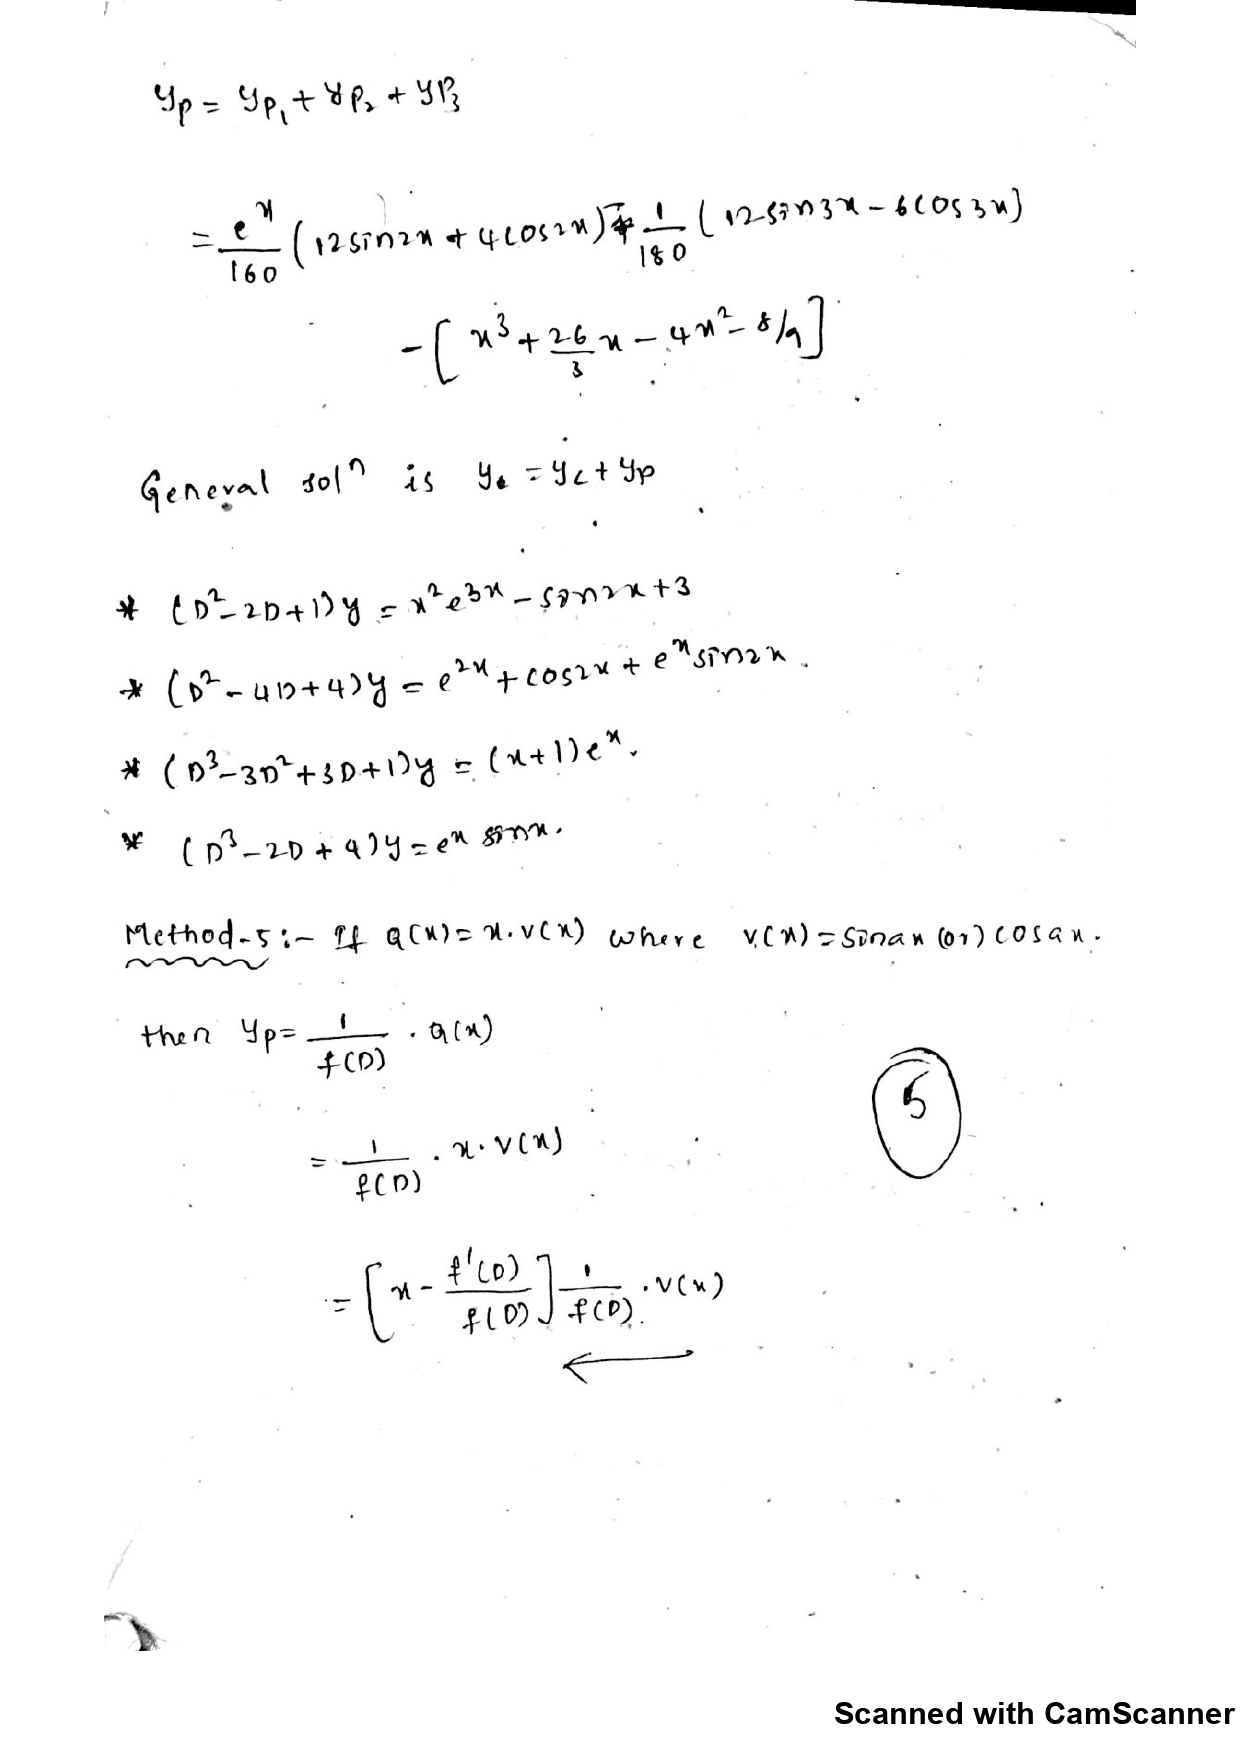 yp = yp₁ + yp₂ + yp₃
= eˣ/160 (12sin2x + 4cos2x) + 1/180 (12sin3x - 6cos3x)
- [x³ + 26/3 x - 4x² - 8/9]
General solⁿ is y = yc + yp
* (D² - 2D + 1)y = x²e³ˣ - sin2x + 3
* (D² - 4D + 4)y = e²ˣ + cos2x + eˣsin2x.
* (D³ - 3D² + 3D + 1)y = (x+1)eˣ.
* (D³ - 2D + 4)y = eˣ sinx.
Method-5:- If Q(x) = x.v(x) where v(x) = sinax (or) cosax.
then yp = 1/f(D) . Q(x)
5
= 1/f(D) . x.v(x)
= [x - f'(D)/f(D)] 1/f(D) .v(x)
Scanned with CamScanner